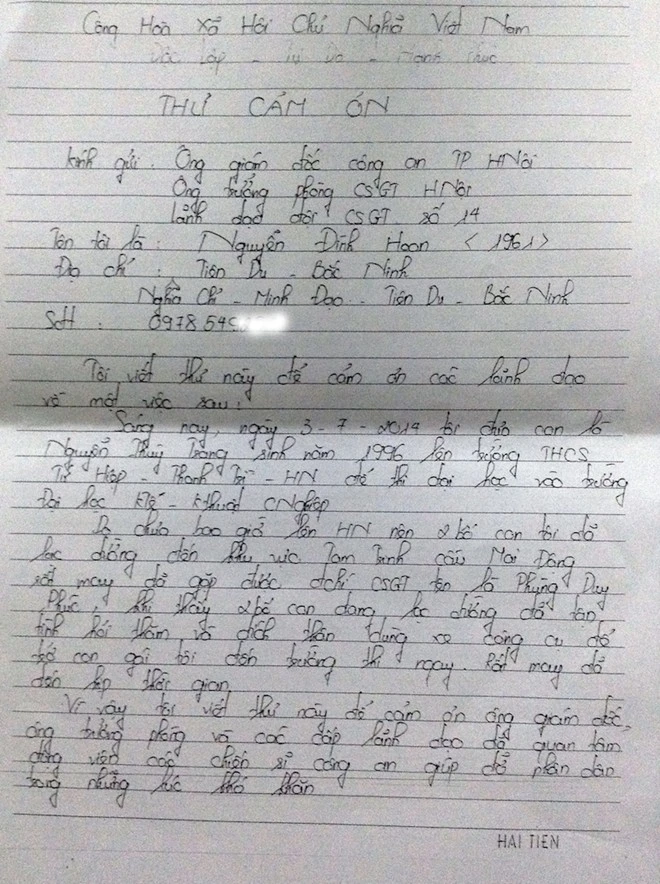 Công Hoà Xã Hội Chủ Nghĩa Việt Nam
Độc Lập - Tự Do - Hạnh Phúc
THƯ CẢM ƠN
Kính gửi: Ông giám đốc công an TP HNội
Ông trưởng phòng CSGT HNội
Lãnh đạo đội CSGT số 14
Tên tôi là: Nguyễn Đình Hoan <1961>
Địa chỉ: Tiên Du - Bắc Ninh
Nghĩa Chỉ - Minh Đạo - Tiên Du - Bắc Ninh
Sđt: 0978.549
Tôi viết thư này để cảm ơn các lãnh đạo
về một việc sau:
Sáng nay, ngày 3-7-2014 tôi đưa con là
Nguyễn Thuỳ Trang sinh năm 1996 lên trường THCS
Tứ Hiệp - Thanh Trì - HN để thi đại học vào trường
Đại học Ktế - Kthuật CNghiệp
Do chưa bao giờ lên HN nên 2 bố con tôi đã
lạc đường đến khu vực Tam Trinh cầu Mai Động
rất may đã gặp được đchí CSGT tên là Phùng Duy
Phúc, khi thấy 2 bố con đang lạc đường đã tận
tình hỏi thăm và đích thân dùng xe công cụ để
trở con gái tôi đến trường thi ngay. Rất may đã
đến kịp thời gian
Vì vậy tôi viết thư này để cảm ơn ông giám đốc,
ông trưởng phòng và các cấp lãnh đạo đã quan tâm
động viên các chiến sĩ công an giúp đỡ nhân dân
trong những lúc khó khăn
HẢI TIẾN